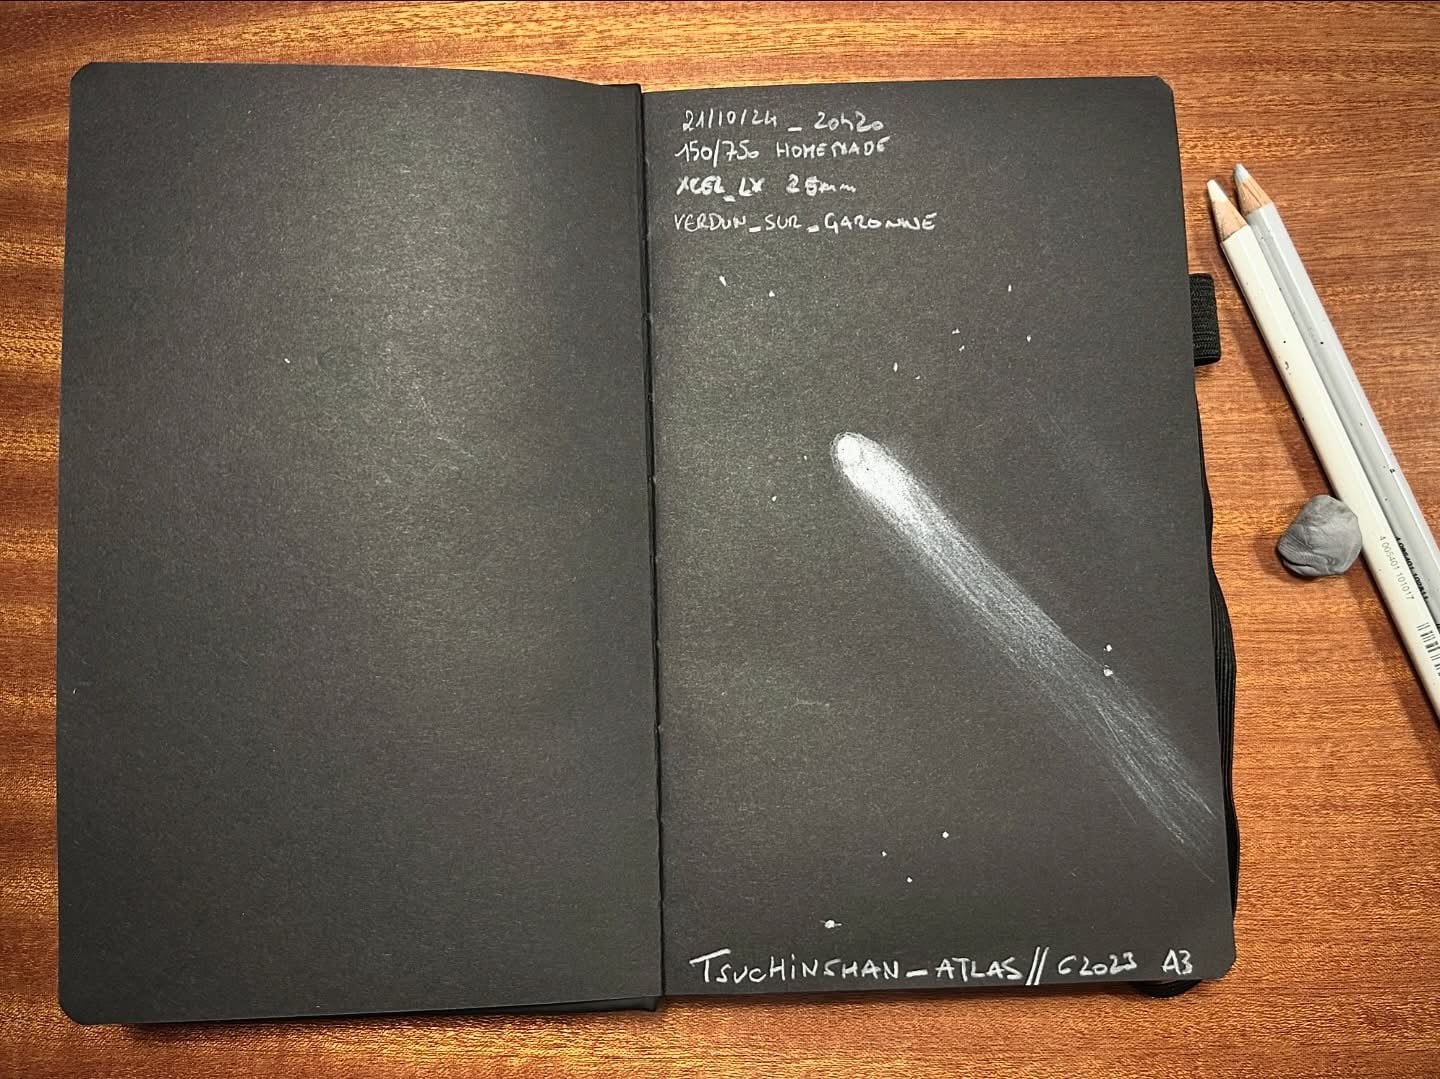 21/10/24 _ 20h20
150/750 HOMEMADE
XCEL_LX 25mm
VERDUN_SUR_GARONNE
TSUCHINSHAN_ATLAS // C2023 A3
4 005401 101017